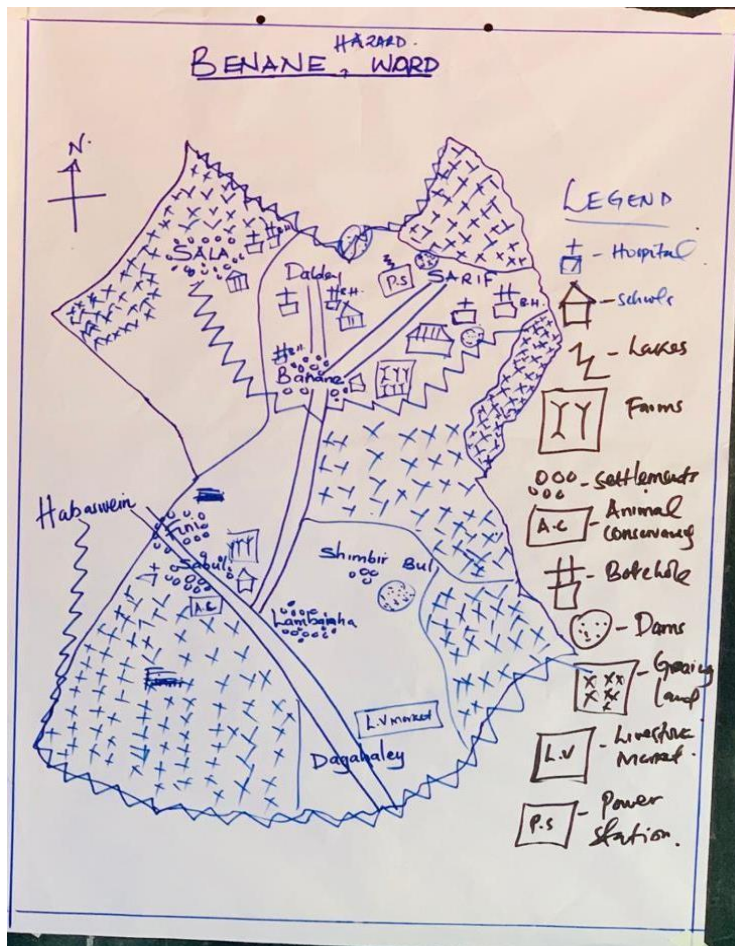 HAZARD.
BENANE, WORD
N.
LEGEND
SALA
B.H
Daldey
B.H.
P.S
SARIF
B.H.
B.H.
Banane
Habaswein
Fini
Sabuli
A.C
Shimbir Bul
Lambaigha
L.V market
Dagahaley
- Hospital
- Schools
- Lakes
Farms
- Settlements
A.C - Animal
conservancy
- Borehole
- Dams
- Grazing
land
L.V - Livestock
Market.
P.S - Power
Station.